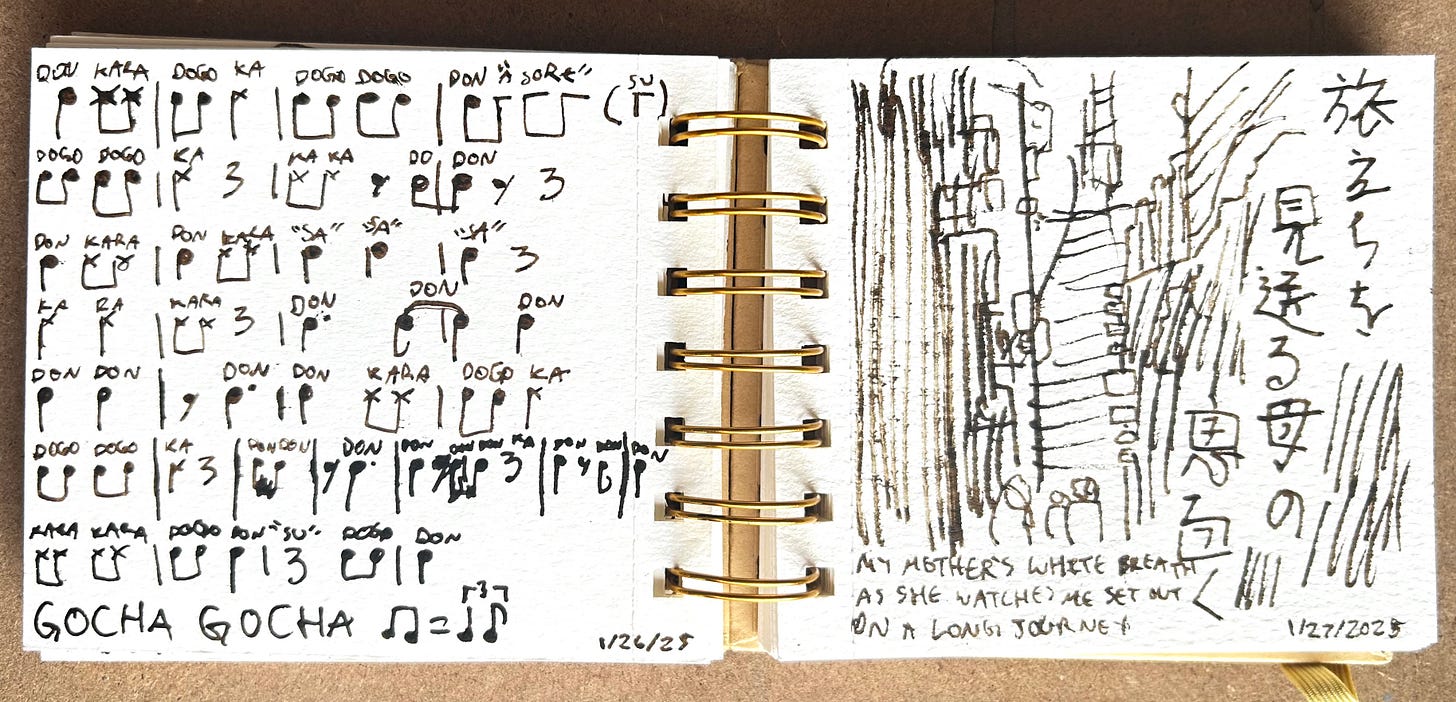 DON KARA DOGO KA DOGO DOGO DON "A SORE" (SU)
DOGO DOGO KA KA KA DO DON
DON KARA DON KARA "SA" "SA" "SA"
KA RA KARA DON DON DON
DON DON DON DON KARA DOGO KA
DOGO DOGO KA DON DON DON DON DON DON KA DON DON DON
KARA KARA DOGO DON "SU" DOGO DON
GOCHA GOCHA ♫=♩♪ 3
1/26/25
旅立ちを
見送る母の
息白く
MY MOTHER'S WHITE BREATH
AS SHE WATCHES ME SET OUT
ON A LONG JOURNEY
1/27/2025